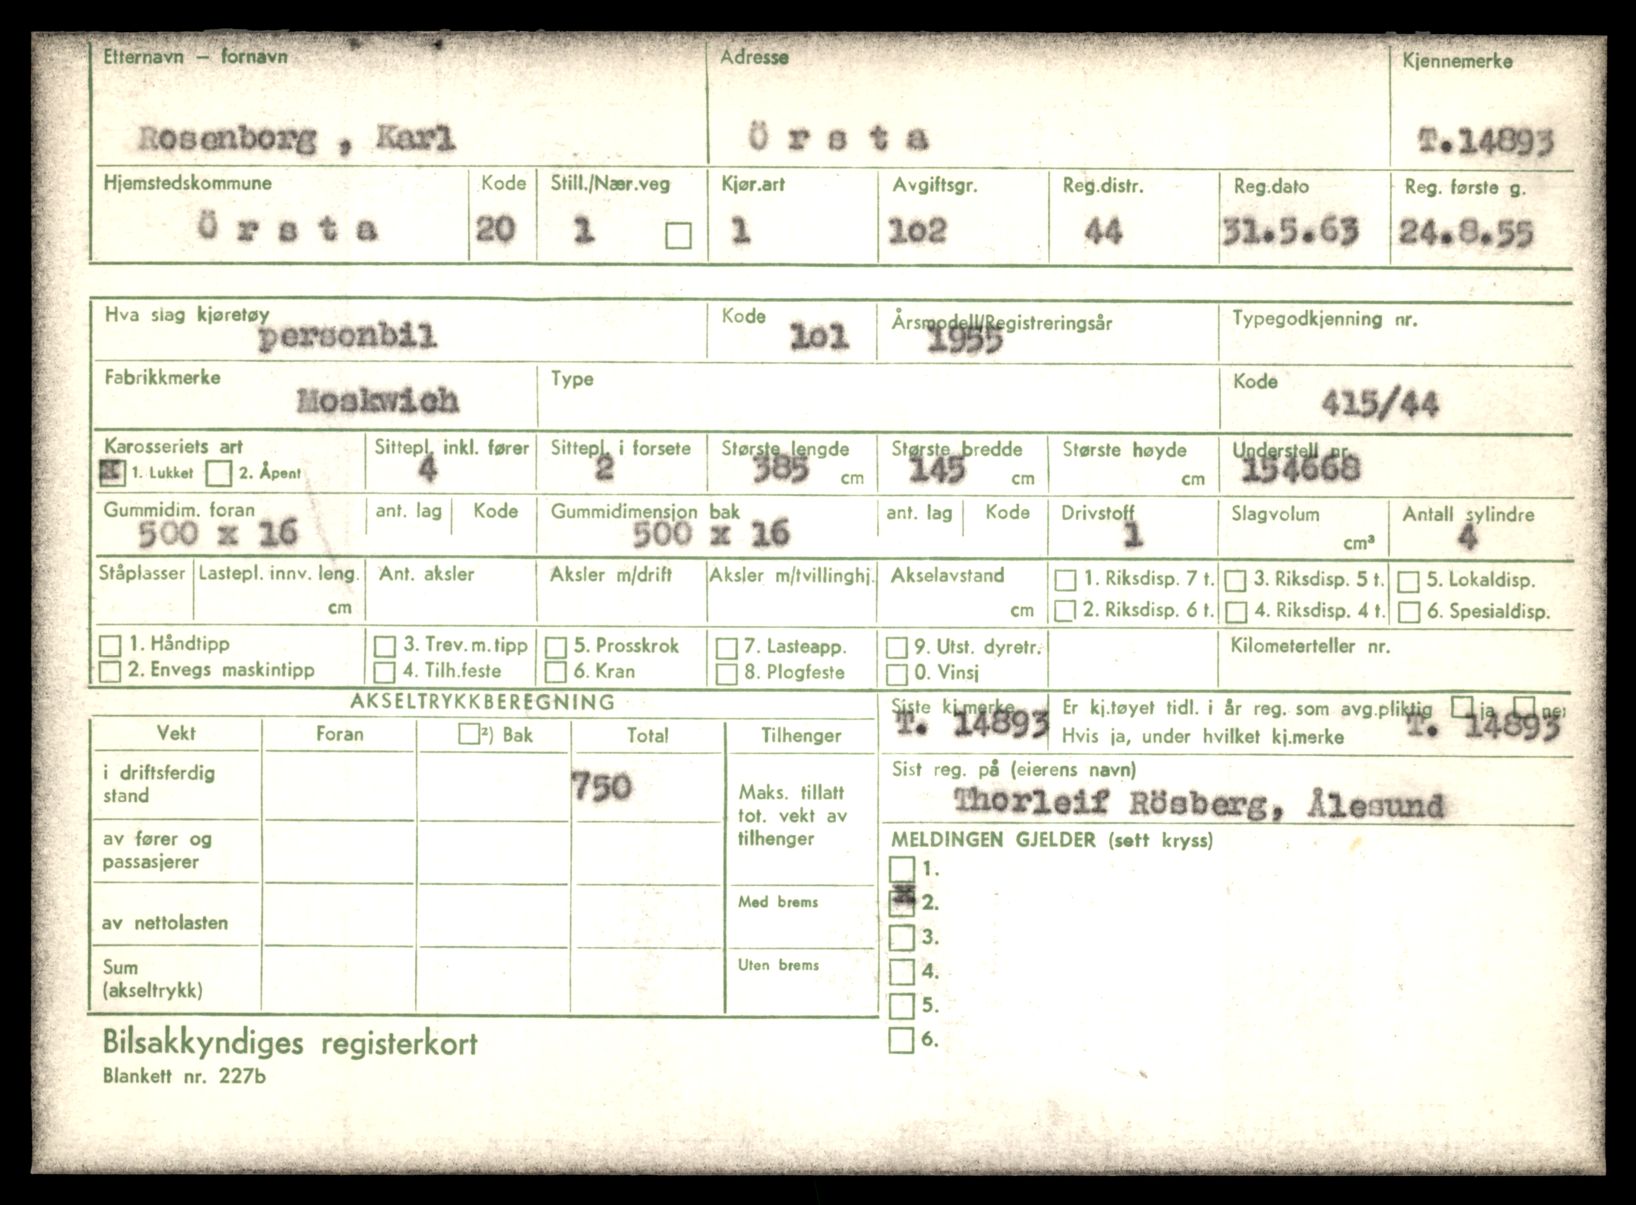 Etternavn — fornavn Adresse Kjennemerke
Rosenborg , Karl Ö r s t a T.14893
Hjemstedskommune Kode Still./Nær.veg Kjør.art Avgiftsgr. Reg.distr. Reg.dato Reg. første g.
Ö r s t a 20 1 1 1o2 44 31.5.63 24.8.55
Hva slag kjøretøy Kode Årsmodell/Registreringsår Typegodkjenning nr.
personbil 1o1 1955
Fabrikkmerke Type Kode
Moskwich 415/44
Karosseriets art Sittepl. inkl. fører Sittepl. i forsete Største lengde Største bredde Største høyde Understell nr.
x 1. Lukket 2. Åpent 4 2 385 cm 145 cm cm 154668
Gummidim. foran ant. lag Kode Gummidimensjon bak ant. lag Kode Drivstoff Slagvolum Antall sylindre
500 x 16 500 x 16 1 cm³ 4
Ståplasser Lastepl. innv. leng. Ant. aksler Aksler m/drift Aksler m/tvillinghj. Akselavstand 1. Riksdisp. 7 t. 3. Riksdisp. 5 t. 5. Lokaldisp.
cm cm 2. Riksdisp. 6 t. 4. Riksdisp. 4 t. 6. Spesialdisp.
1. Håndtipp 3. Trev. m. tipp 5. Prosskrok 7. Lasteapp. 9. Utst. dyretr. Kilometerteller nr.
2. Envegs maskintipp 4. Tilh.feste 6. Kran 8. Plogfeste 0. Vinsj
AKSELTRYKKBEREGNING Siste kj.merke Er kj.tøyet tidl. i år reg. som avg.pliktig ja nei
T. 14893 T. 14893
Vekt Foran ²) Bak Total Tilhenger Hvis ja, under hvilket kj.merke
i driftsferdig stand 750 Maks. tillatt tot. vekt av tilhenger Sist reg. på (eierens navn)
Thorleif Rösberg, Ålesund
av fører og passasjerer MELDINGEN GJELDER (sett kryss)
1.
av nettolasten Med brems x 2.
3.
Sum (akseltrykk) Uten brems 4.
5.
Bilsakkyndiges registerkort 6.
Blankett nr. 227b